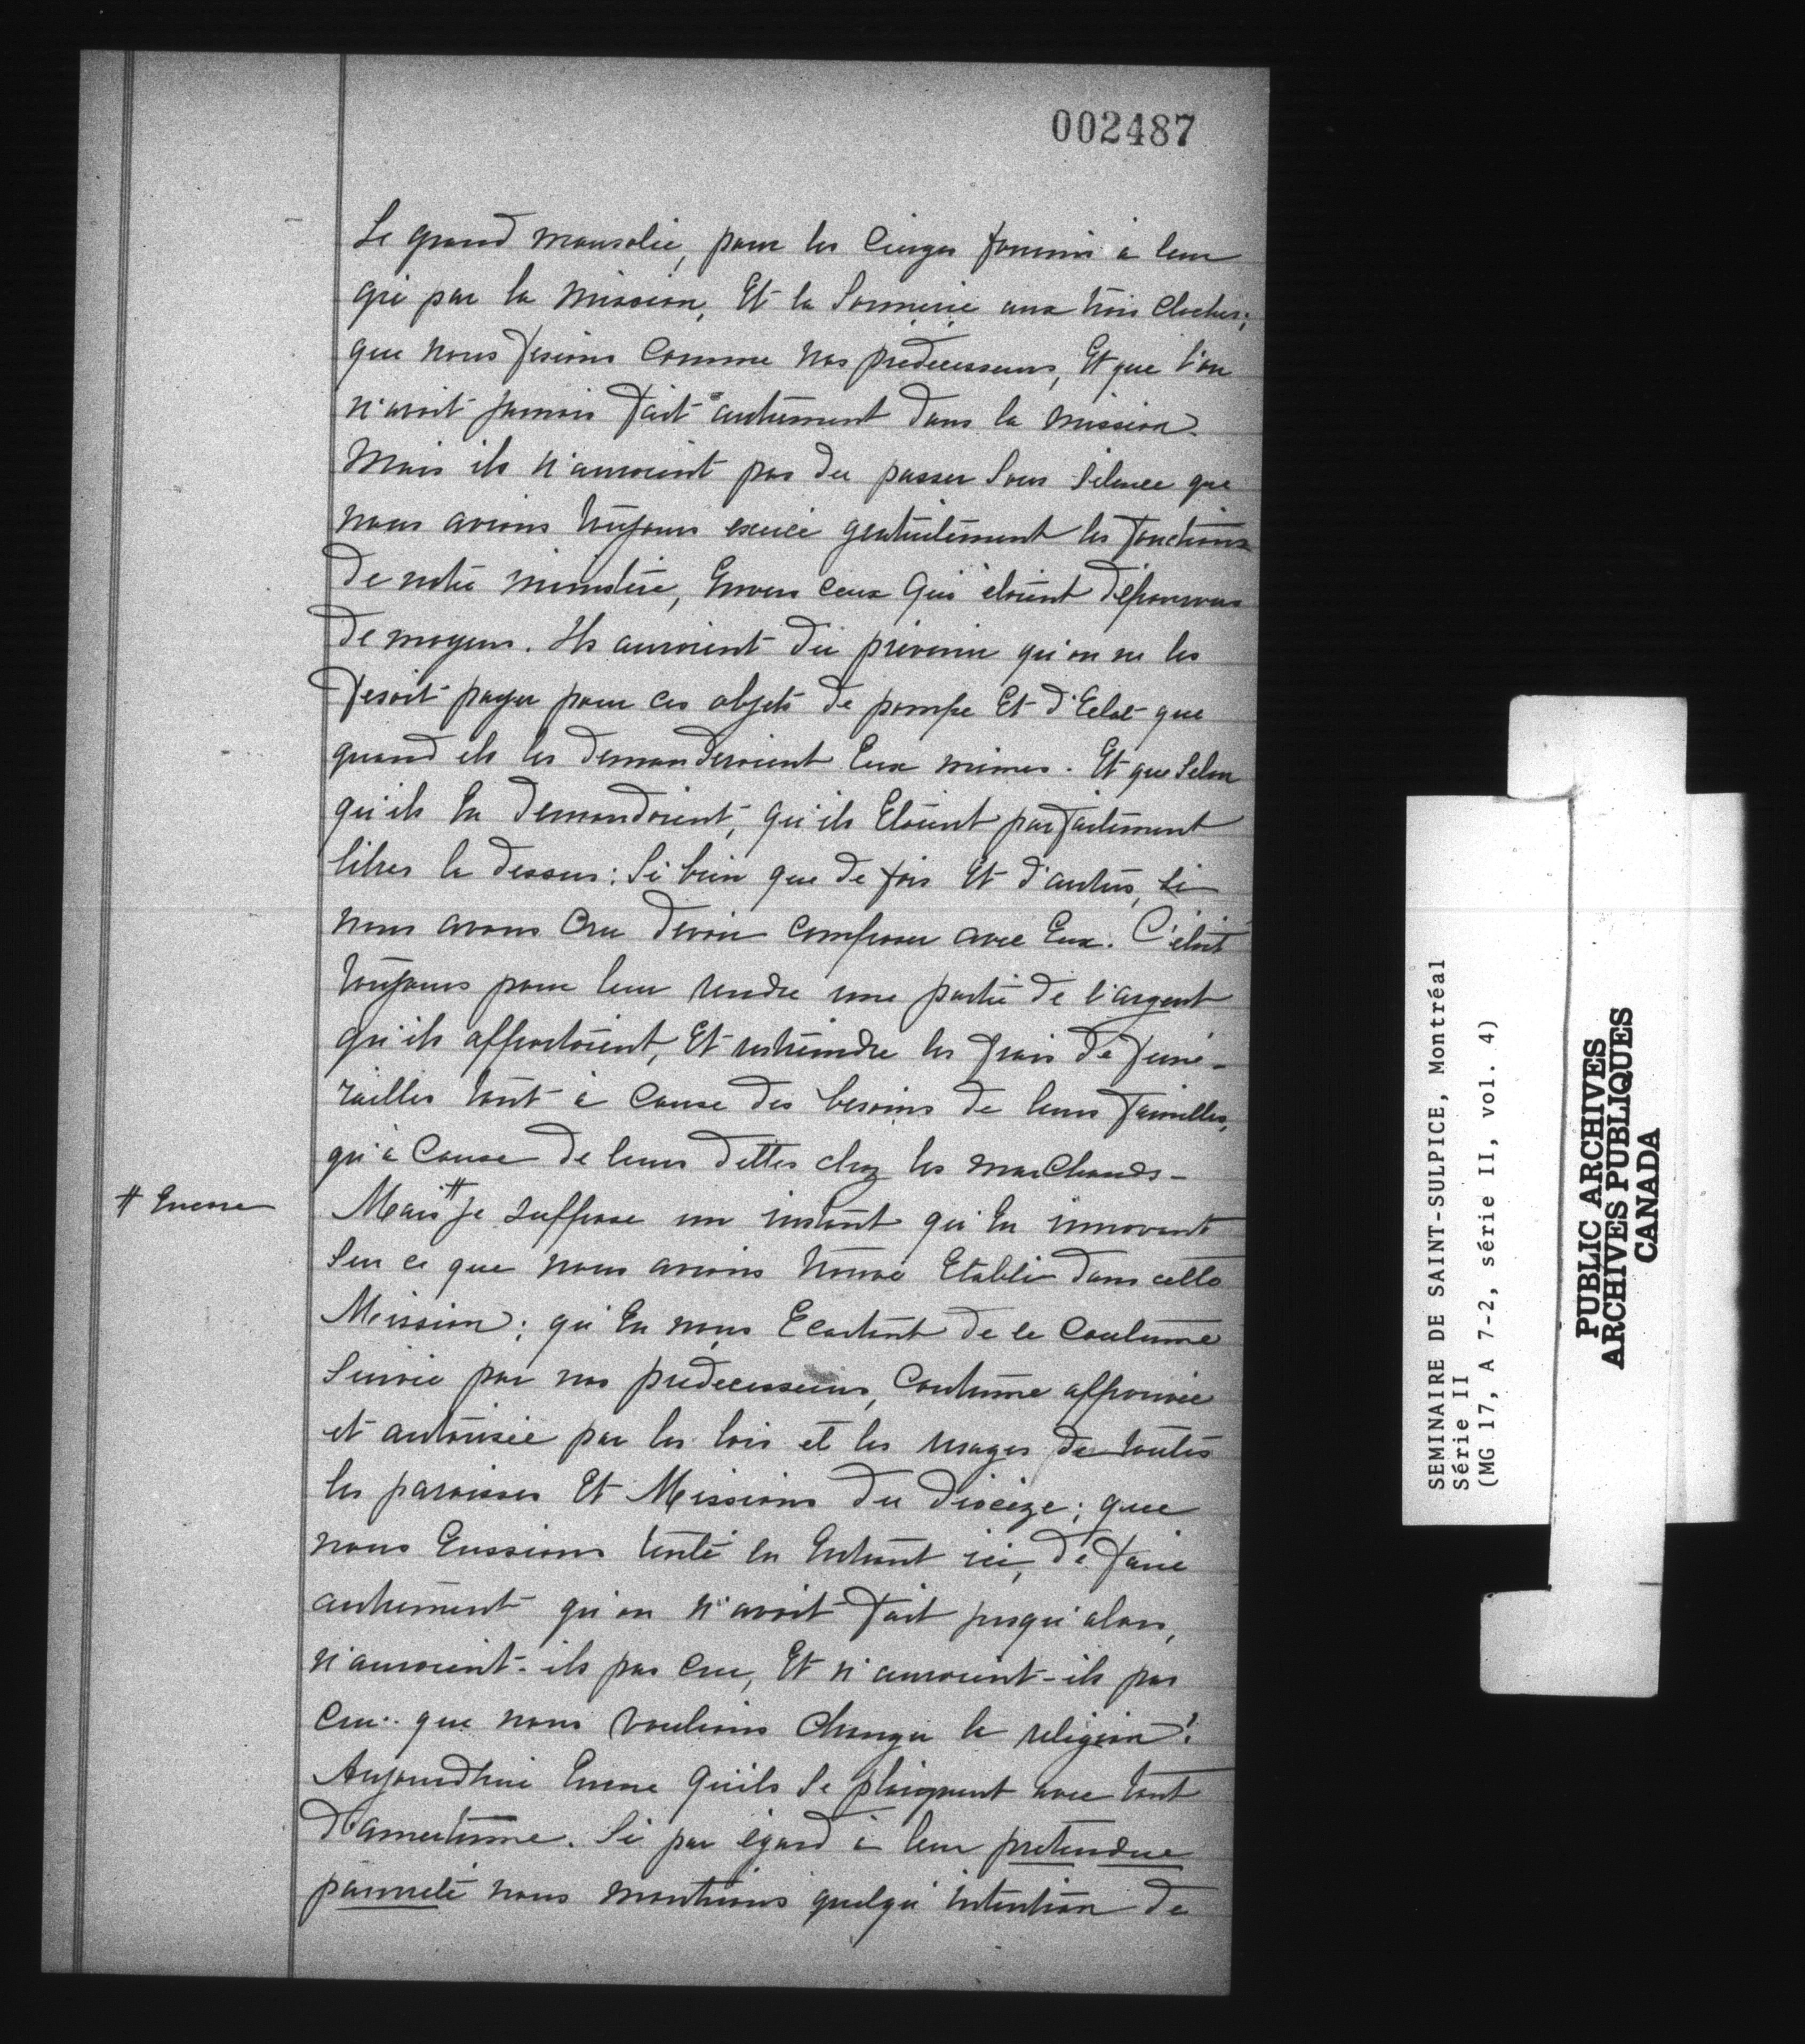 002487
Le grand mausolée, pour les Cierges fournis à leur
gré par la Mission, Et la Sonnerie aux trois cloches;
que nous fesions Comme nos prédecesseurs, Et que l'on
n'avoit jamais fait autrement dans la mission.
Mais ils n'auroient pas du passer Sous Silence que
nous avions toujours exercé gratuitement les fonctions
de notre ministère, Envers ceux qui étoient dépourvus
de moyens. Ils auroient dû prévenir qu'on ne les
fesoit payer pour ces objets de pompe Et d'Eclat que
quand ils les demanderoient Eux mêmes. Et que Selon
qu'ils En demandoient, qu'ils Etoient parfaitement
libres la dessus: Si bien que de fois Et d'autres, si
nous avons Cru devoir composer avec Eux. C'étoit
toujours pour leur rendre une partie de l'argent
qu'ils apportoient, Et restreindre les frais de funé-
railles tant à Cause des besoins de leurs familles,
qu'à Cause de leurs dettes chez les marChands-
# Encore
Mais # je suppose un instant qu'En innovant
Sur ce que nous avions trouvé Etabli dans cette
Mission; qu'En nous Ecartant de la Coutume
Suivie par nos prédecesseurs, Coutume approuvée
et autorisée par les lois et les usages de toutes
les paroisses Et Missions du diocèze; que
nous Eussions tenté en Entrant ici, de faire
autrement qu'on n'avoit fait jusqu'alors,
n'auroient-ils pas cru, Et n'auroient-ils pas
Cru.. que nous voulions Changer la religion?
Aujourdhui Encore qu'ils Se plaignent avec tant
d'amertume. Si par égard à leur pretendue
pauvreté nous montrions quelqu'intention de
SEMINAIRE DE SAINT-SULPICE, Montréal
Série II
(MG 17, A 7-2, série II, vol. 4)
PUBLIC ARCHIVES
ARCHIVES PUBLIQUES
CANADA